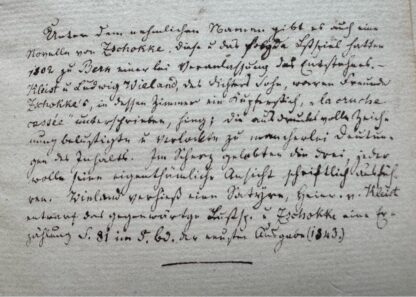 Unter dem nehmlichen Namen gibt es auch eine
Novelle von Zschokke. Diese u das folgde Lustspiel hatten
1802 zu Bern einerlei Veranlassung des Entstehens. –
Kleist u Ludwig Wieland, des Dichters Sohn, waren Freunde
Zschokke's, in dessen Zimmer ein Kupferstich, „la cruche
cassée" unterschrieben, hing; die ausdruksvolle Zeich-
nung belustigte u verlockte zu mancherlei Deutun-
gen des Inhalts. Im Scherz gelobten die drei, jeder
wolle seine eigenthümliche Ansicht schriftlich ausfüh-
ren. Wieland verhieß eine Satyre, Heinr. v. Kleist
entwarf das gegenwärtige Lustsp. u Zschokke eine Er-
zählung S. 81 im 5. bd. der neusten Ausgabe (1843.)